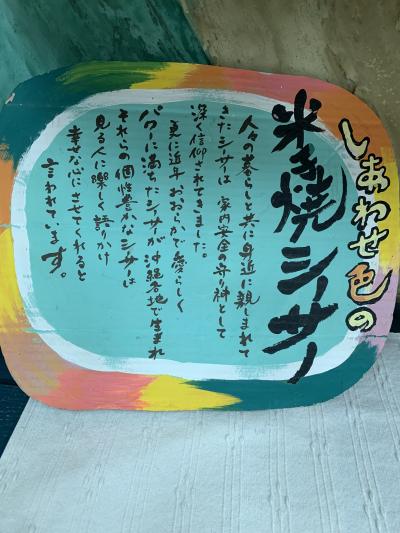 しあわせ色の
米子焼シーサー
人々の暮らしと共に身近に親しまれて
きたシーサーは 家内安全の守り神として
深く信仰されてきました。
更に近年おおらかで愛らしく
パワーに満ちたシーサーが沖縄各地で生まれ
それらの個性豊かなシーサーは
見る人に楽しく語りかけ
幸せな心にさせてくれると
言われています。